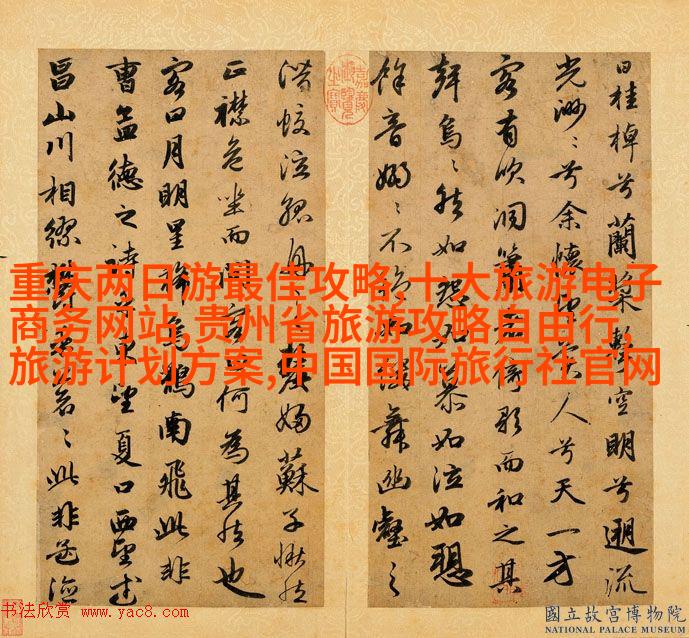 重庆两日游最佳攻略,十大旅游电子
商务网站,贵州省旅游攻略自由行
旅游计划方案,中国国际旅行社官网
曰桂棹兮蘭槳擊空明兮遡流
光渺〻兮余懷望美人兮天一方
客有吹洞簫者倚歌而和之其
聲烏〻然如怨如慕如泣如愬
餘音嫋〻不絶如縷舞幽壑之
潛蛟泣孤舟之嫠婦蘇子愀然
正襟危坐而問客曰何為其然也
客曰月明星稀烏鵲南飛此非
曹孟德之詩乎東望夏口西望武
昌山川相繆鬱乎蒼〻此非孟德
嘉慶御覽之寶
书法欣赏 www.yac8.com
國立故宮博物院
NATIONAL PALACE MUSEUM